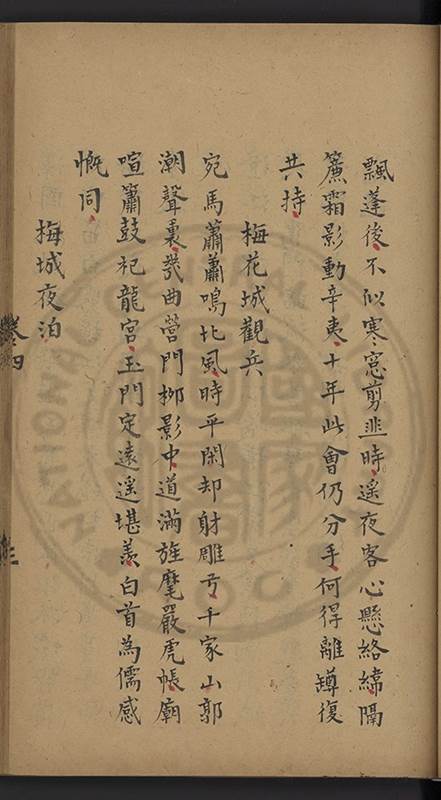 飄蓬後不似寒窻剪韭時遥夜客心懸絡緯隔
簾霜影動辛夷十年此會仍分手何得離罇復
共持
梅花城觀兵
宛馬蕭蕭鳴北風時平閑却射雕弓千家山郭
潮聲裏幾曲營門栁影中道滿旌麾嚴虎帳廟
喧簫鼓祀龍宮玉門定遠遥堪羨白首為儒感
慨同
梅城夜泊
卷四